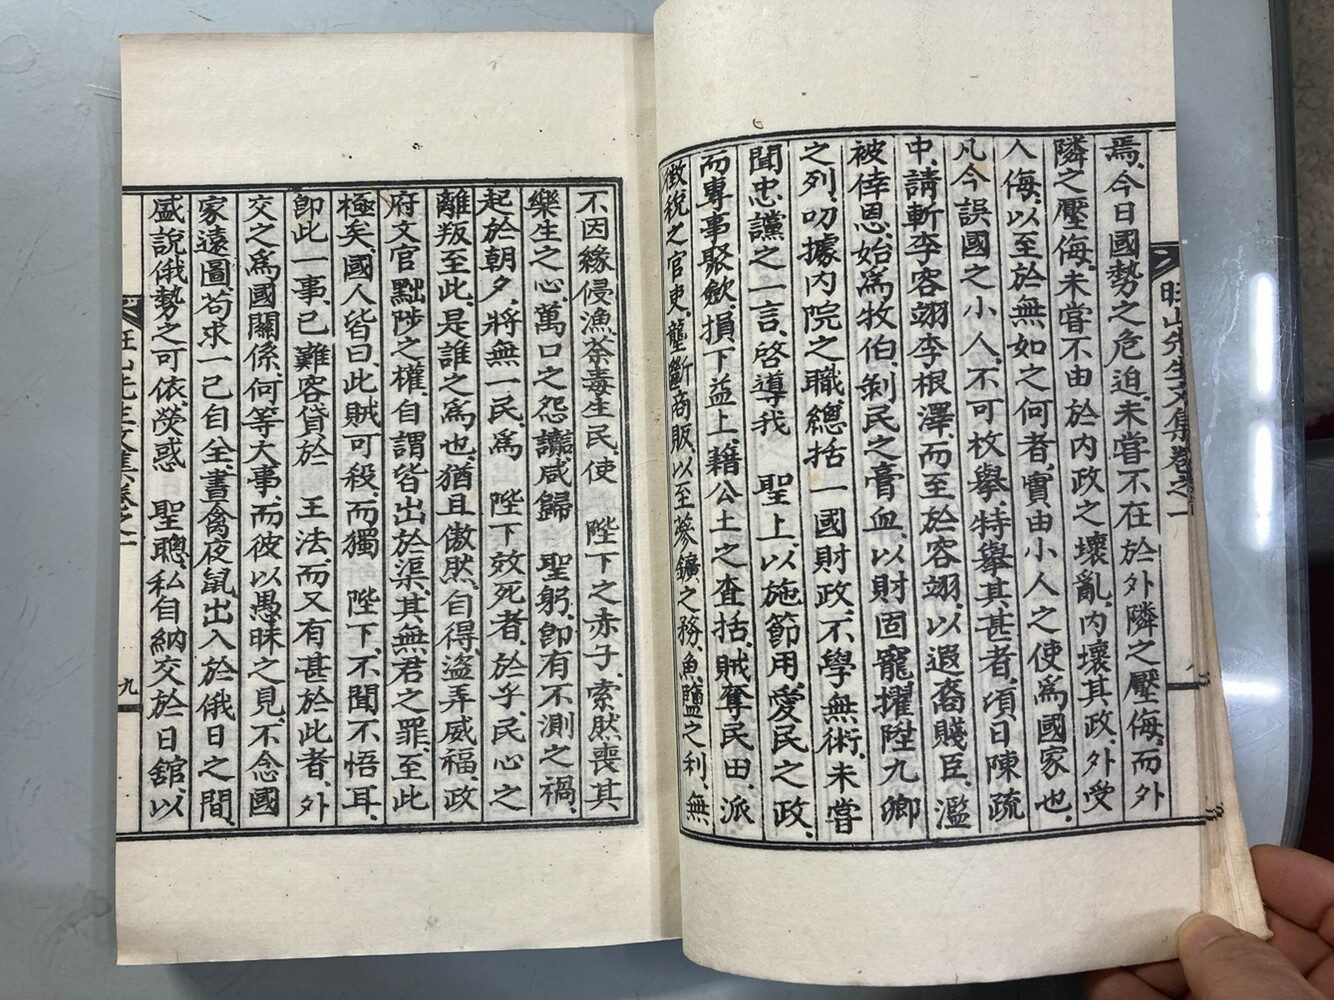 焉、今日國勢之危迫、未嘗不在於外隣之壓侮、而外
隣之壓侮、未嘗不由於內政之壞亂、內壞其政、外受
人侮、以至於無如之何者、實由小人之使爲國家也、
凡今誤國之小人、不可枚擧、特擧其甚者、頃日陳疏
中、請斬李容翊李根澤、而至於容翊、以遐裔賤臣、濫
被倖恩、始爲牧伯剝民之膏血、以財固寵、擢陞九卿
之列、叨據內院之職、總括一國財政、不學無術、未嘗
聞忠讜之一言、啓導我 聖上以施節用愛民之政、
而專事聚斂、損下益上、藉公土之査括、賊奪民田、派
徵稅之官吏、壟斷商販、以至蔘鑛之務、魚鹽之利、無
旺山先生文集卷之一
不因緣侵漁荼毒生民、使 陛下之赤子、索然喪其
樂生之心、萬口之怨讟、咸歸 聖躬、卽有不測之禍、
起於朝夕、將無一民、爲 陛下效死者、於乎、民心之
離叛至此、是誰之爲也、猶且傲然自得、盜弄威福、政
府文官黜陟之權、自謂皆出於渠、其無君之罪、至此
極矣、國人皆曰此賊可殺、而獨 陛下、不聞不悟耳、
卽此一事、已難容貸於 王法、而又有甚於此者、外
交之爲國關係、何等大事、而彼以愚昧之見、不念國
家遠圖、苟求一己自全、晝禽夜鼠出入於俄日之間、
盛說俄勢之可依、熒惑 聖聰、私自納交於日舘、以
旺山先生文集卷之一
九